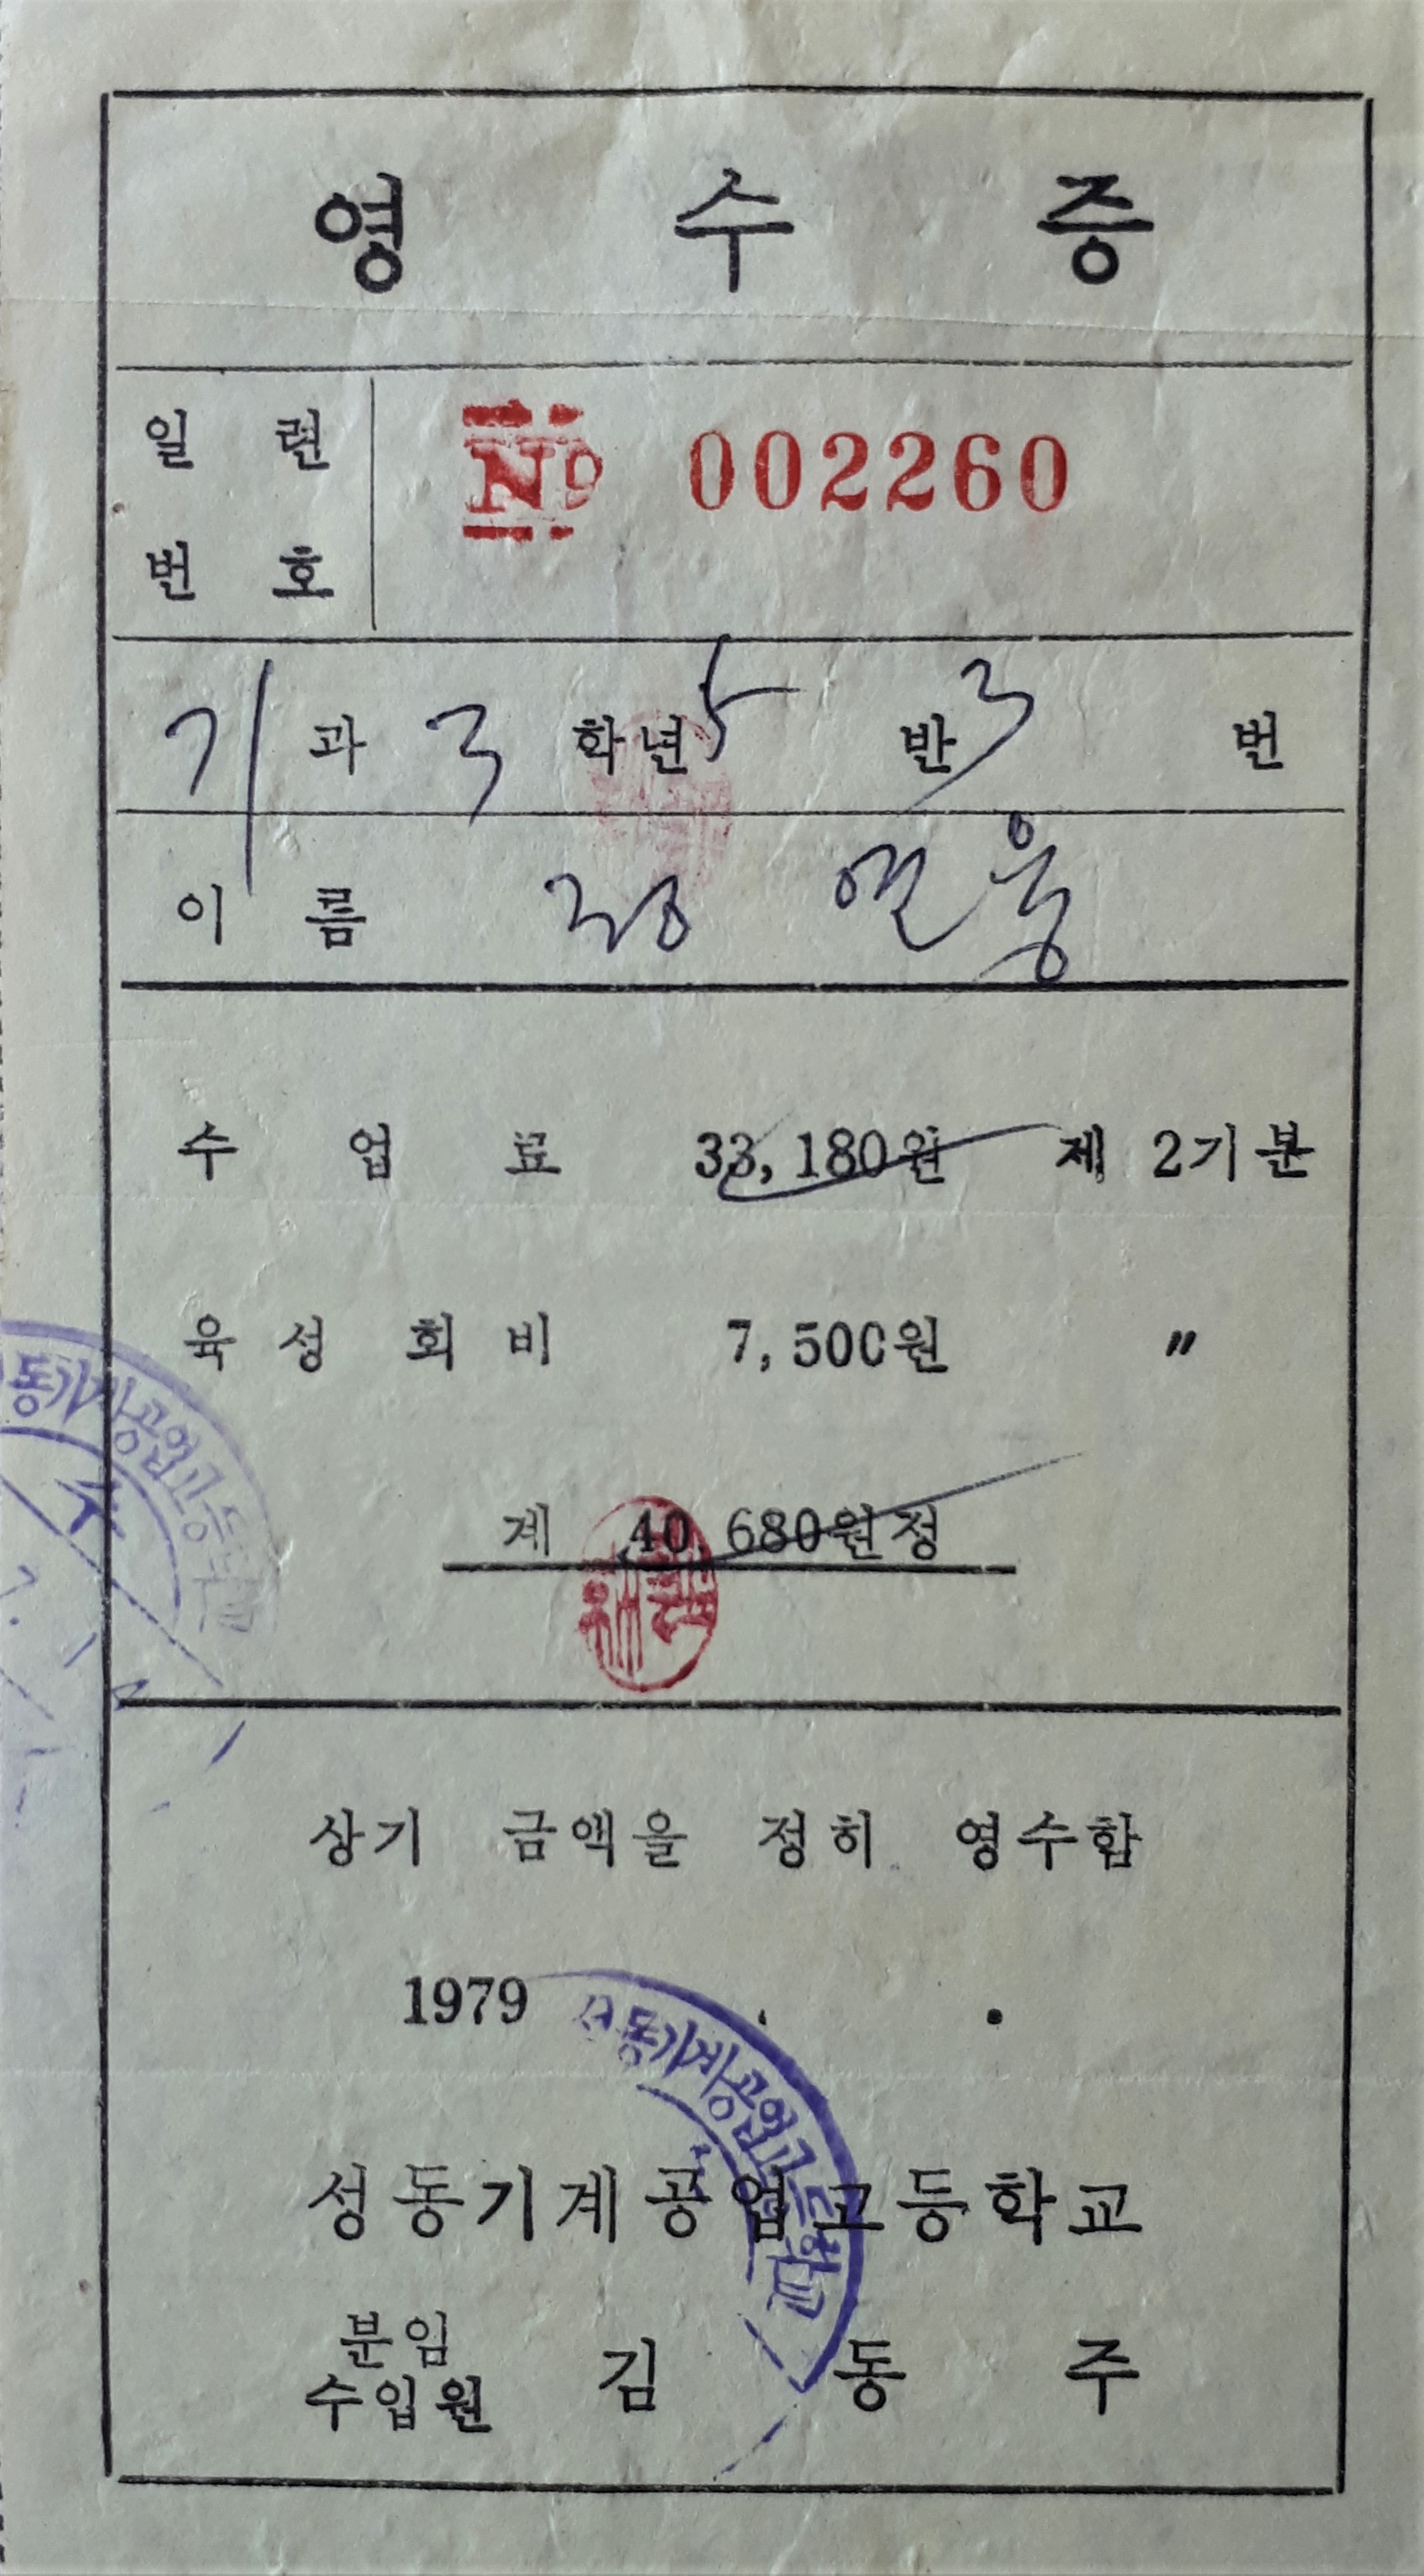 영 수 증
일 련 번 호
№ 002260
기 과 3 학년 5 반 3 번
이 름 김
수 업 료 33,180원 제 2기분
육 성 회 비 7,500원 〃
계 40,680원정
상기 금액을 정히 영수함
1979 . .
성동기계공업고등학교
분임
수입원 김 동 주
동기계공업고등학
수
성동기계공업고등학교